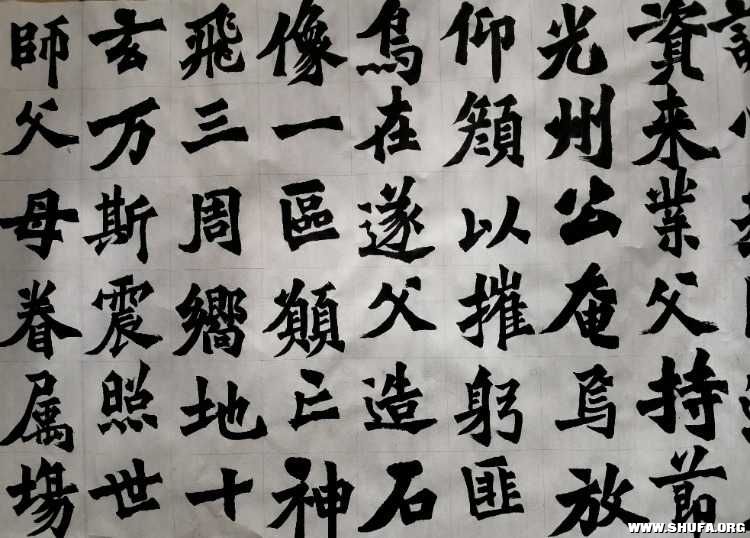 資来業父持節
光州公奄焉放
仰顏以摧躬匪
烏在遂父造石
像一區願亡神
飛三周嚮地十
玄万斯震照世
師父母眷属塲
WWW.SHUFA.ORG